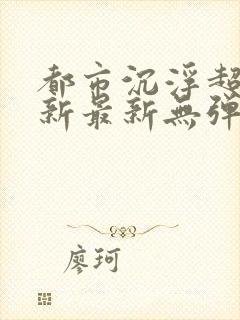 都市沉浮超
新最新無彈
廖珂